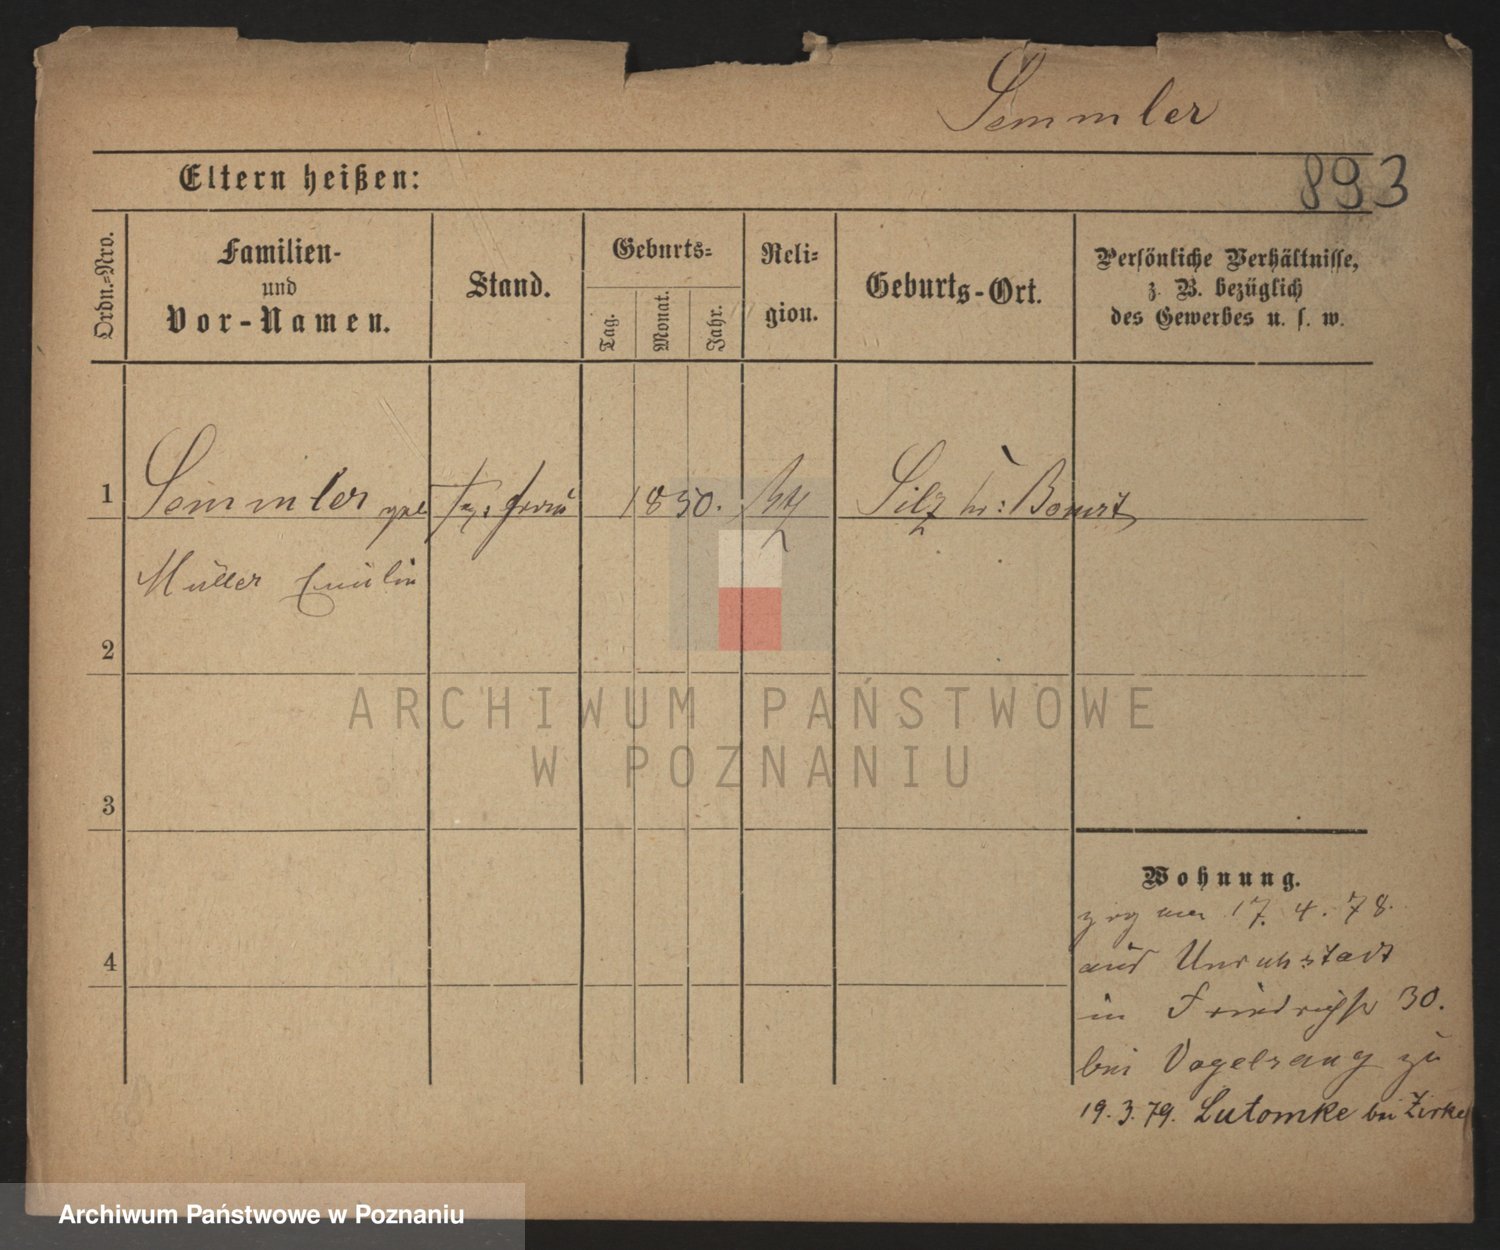 Semmler
893
Eltern heißen:
Ordn.-Nro.
Familien-
und
Vor-Namen.
Stand.
Geburts-
Tag.
Monat.
Jahr.
Reli-
gion.
Geburts-Ort.
Persönliche Verhältnisse,
z. B. bezüglich
des Gewerbes u. s. w.
1 Semmler 1850. Silz Kr: Bomst
Müller Emilie
2
3
4
Wohnung.
17. 4. 78.
aus Unruhstadt
in Friedrichstr 30.
bei Vogelsang zu
19. 3. 79. Lutomke bei Zirke
ARCHIWUM PAŃSTWOWE
W POZNANIU
Archiwum Państwowe w Poznaniu